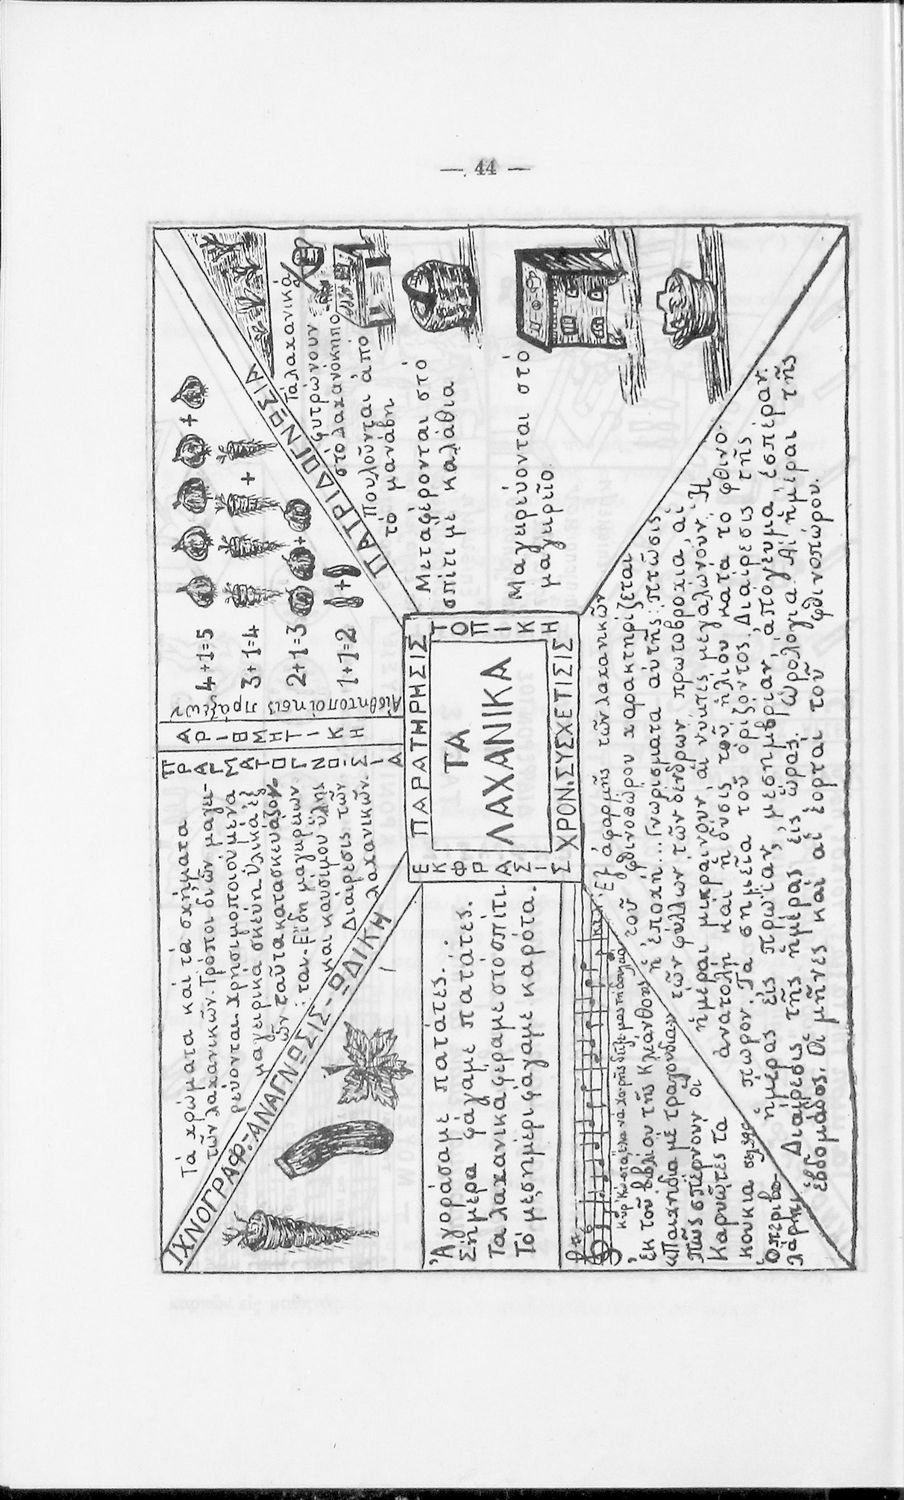 — 44 —
ΤΑ
ΛΑΧΑΝΙΚΑ
ΠΑΡΑΤΗΡΗΣΙΣ
ΤΟΠΙΚΗ
ΧΡΟΝ. ΣΥΣΧΕΤΙΣΙΣ
ΕΚΦΡΑΣΙΣ
ΠΡΑΓΜΑΤΟΓΝΩΣΙΑ
Τὰ χρώματα καὶ τὰ σχήματα
τῶν λαχανικῶν. Τρόποι δι' ὧν μαγει-
ρεύονται. Χρησιμοποιούμενα
μαγειρικὰ σκεύη. Ὑλικὰ ἐξ
ὧν ταῦτα κατασκευάζον-
ται. Εἴδη μαγειρικῶν
καὶ καυσίμου ὕλης
Διαίρεσις τῶν
λαχανικῶν
ΑΡΙΘΜΗΤΙΚΗ
Αἰσθητοποίησις πράξεων
4+1=5 +
3+1=4 +
2+1=3 +
1+1=2 +
ΠΑΤΡΙΔΟΓΝΩΣΙΑ
Τὰ λαχανικὰ
φυτρώνουν
στὸ λαχανόκηπο
Πουλοῦνται ἀπὸ
τὸ μανάβη
Μεταφέρονται στὸ
σπίτι μὲ καλάθια
Μαγειρεύονται στὸ
μαγειρεῖο.
ΙΧΝΟΓΡΑΦ.-ΑΝΑΓΝΩΣΙΣ-ΩΔΙΚΗ
Ἀγοράσαμε πατάτες.
Σήμερα φάγαμε πατάτες.
Τὰ λαχανικὰ φέραμε στὸ σπίτι
Τὸ μεσημέρι φάγαμε καρότα.
Ἐκ τοῦ βιβλίου τῆς Κλεάνθους
«Παιχνίδια μὲ τραγούδια»
Πῶς σπέρνουν οἱ
Χωριάτες τὰ
κουκιὰ
Ὁ περιβο-
λάρης
Ἐξ ἀφορμῆς τῶν λαχανικῶν
τοῦ φθινοπώρου χαρακτηρίζεται
ἡ ἐποχὴ... Γνωρίσματα αὐτῆς: πτῶσις
τῶν φύλλων τῶν δένδρων πρωτοβρόχια, αἱ
ἡμέραι μικραίνουν, αἱ νύκτες μεγαλώνουν. Ἡ
ἀνατολὴ καὶ ἡ δύσις τοῦ ἡλίου κατὰ τὸ φθινό-
πωρον. Τὰ σημεῖα τοῦ ὁρίζοντος. Διαίρεσις τῆς
ἡμέρας εἰς πρωΐαν, μεσημβρίαν ἀπόγευμα, ἑσπέραν.
Διαίρεσις τῆς ἡμέρας εἰς ὥρας. Ὡρολόγια. Αἱ ἡμέραι τῆς
ἑβδομάδος. Οἱ μῆνες καὶ αἱ ἑορταὶ τοῦ φθινοπώρου.